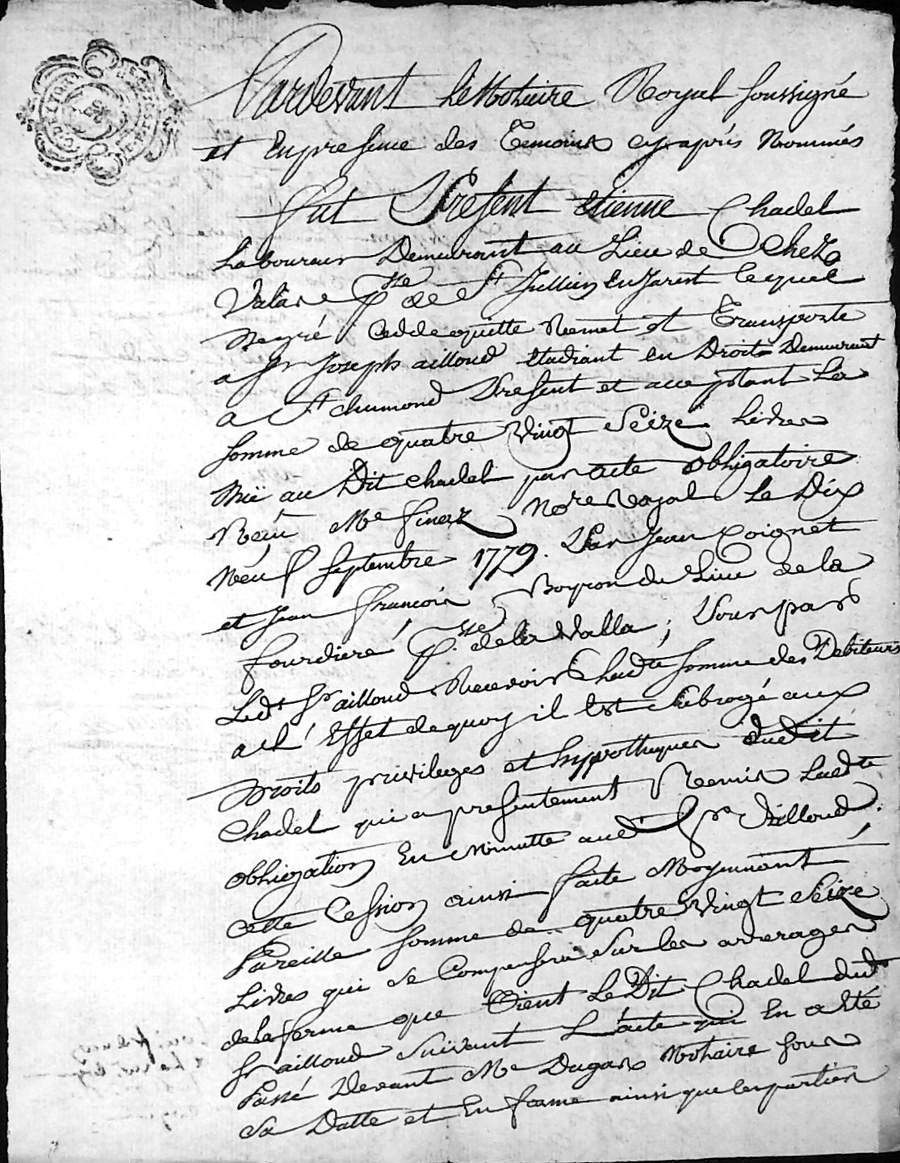 Pardevant Le Notaire Royal soussigné
et En presence des Temoins cy aprés Nommés
fut Present Etienne Chadel
Laboureur Demeurant au Lieu de Chez
Valare psse de St Jullien En Jarest Lequel
Degré Cedde quitte Remet et Transporte
a Sr Joseph ailloud Etudiant en Droits Demeurant
a St chumond Present et acceptant La
somme de quatre vingt seize Livres
düe au Dit chadel par acte obligatoire
Reçu Me finaz Nore Royal Le Dix
Neuf septembre 1779. Par Jean Coignet
et Jean François Boyron du Lieu de la
fourdiere psse de la Valla; Pour par
Ledt Sr ailloud Recevoir Ladte somme des Debiteurs
a L'Effet dequoy il Est subrogé aux
Droits privileges et hypotheques dudit
Chadel qui a presentement Remis Ladte
obligation En minutte audt Sr Ailloud.
cette Cession ainsi faite Moyennant
Pareille somme de quatre Vingt Seize
Livres qui se Compensera sur les arrerages
de la ferme que Tient Le Dit Chadel dudt
Sr ailloud suivant L'acte qui En a été
Passé Devant Me Dugas Notaire sous
sa Datte et En forme ainsi que les parties